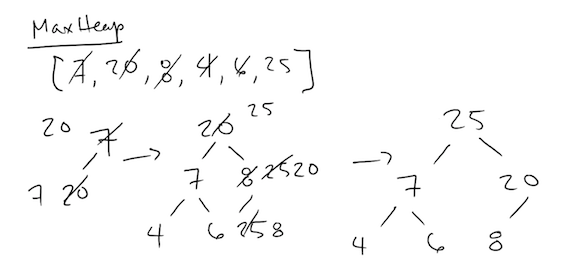 MaxHeap
[7, 20, 8, 4, 6, 25]
25
20 7 → 20 25 → 25
7 20 7 8 25 20 7 20
4 6 25 8 4 6 8